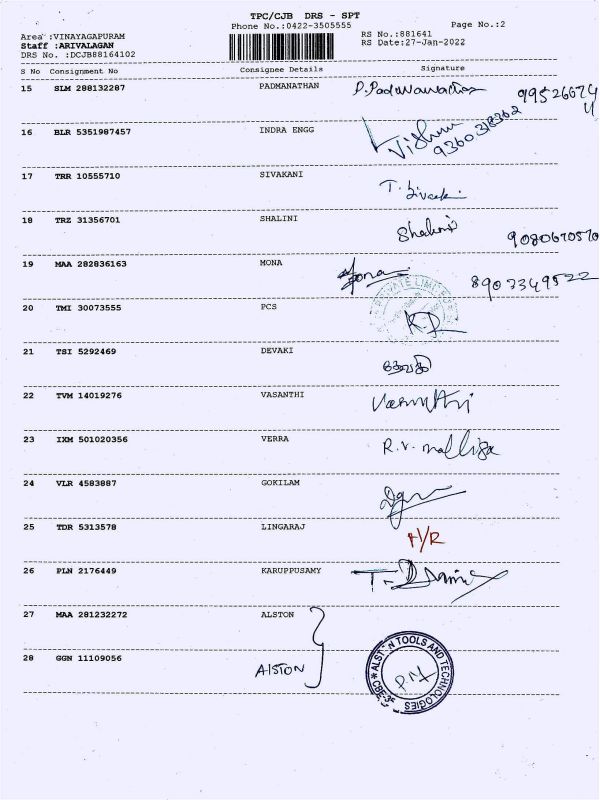 TPC/CJB DRS - SPT
Phone No.:0422-3505555
Page No.:2
Area :VINAYAGAPURAM
Staff :ARIVALAGAN
DRS No. :DCJB88164102
RS No.:881641
RS Date:27-Jan-2022
S No Consignment No Consignee Details Signature
15 SLM 288132287 PADMANATHAN P. Padmanathan
16 BLR 5351987457 INDRA ENGG Vishnu
9360318362
17 TRR 10555710 SIVAKANI T. Sivaki
18 TRZ 31356701 SHALINI Shalini
9080670570
19 MAA 282836163 MONA Mona
PRIVATE LIMITED
20 TMI 30073555 PCS K.D
21 TSI 5292469 DEVAKI தேவகி
22 TVM 14019276 VASANTHI Vasanthi
23 IXM 501020356 VERRA R.V. malliga
24 VLR 4583887 GOKILAM
25 TDR 5313578 LINGARAJ N/R
26 PLN 2176449 KARUPPUSAMY
27 MAA 281232272 ALSTON
28 GGN 11109056
AlSTON
ALSTON TOOLS AND TECHNOLOGIES
CBE-35
P.M